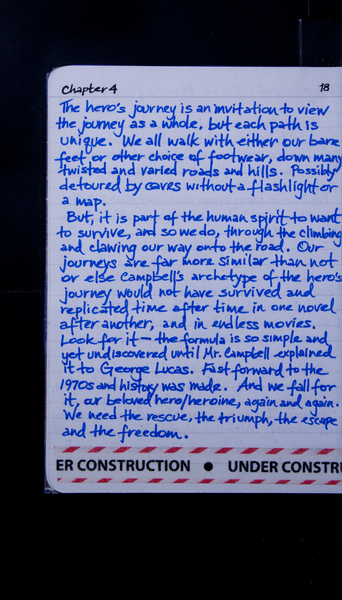 Chapter 4 18
The hero's journey is an invitation to view
the journey as a whole, but each path is
unique. We all walk with either our bare
feet or other choice of footwear, down many
twisted and varied roads and hills. Possibly
detoured by caves without a flashlight or
a map.
But, it is part of the human spirit to want
to survive, and so we do, through the climbing
and clawing our way onto the road. Our
journeys are far more similar than not
or else Campbell's archetype of the hero's
journey would not have survived and
replicated time after time in one novel
after another, and in endless movies.
Look for it — the formula is so simple and
yet undiscovered until Mr. Campbell explained
it to George Lucas. Fast forward to the
1970s and history was made. And we fall for
it, our beloved hero/heroine, again and again.
We need the rescue, the triumph, the escape
and the freedom.
ER CONSTRUCTION ● UNDER CONSTRU